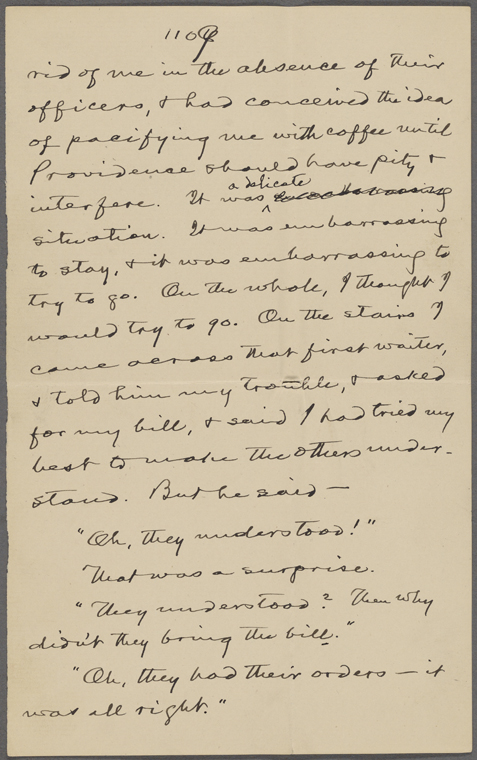 110
rid of me in the absence of their
officers, & had conceived the idea
of pacifying me with coffee until
Providence should have pity &
interfere. It was a delicate
situation. It was embarrassing
to stay, & it was embarrassing to
try to go. On the whole, I thought I
would try to go. On the stairs I
came across that first waiter,
& told him my trouble, & asked
for my bill, & said I had tried my
best to make the others under-
stand. But he said —
"Oh, they understood!"
That was a surprise.
"They understood? Then why
didn't they bring the bill."
"Oh, they had their orders — it
was all right."